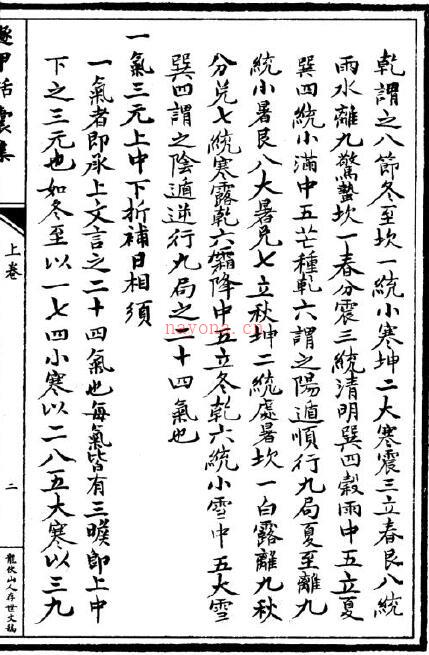 乾謂之八節冬至坎一統小寒坤二大寒震三立春艮八統
雨水離九驚蟄坎一春分震三統清明巽四穀雨中五立夏
巽四統小滿中五芒種乾六謂之陽遁順行九局夏至離九
統小暑艮八大暑兌七立秋坤二統處暑坎一白露離九秋
分兌七統寒露乾六霜降中五立冬乾六統小雪中五大雪
巽四謂之陰遁逆行九局之二十四氣也
一氣三元上中下折補日相須
一氣者即承上文言之二十四氣也每氣皆有三候即上中
下之三元也如冬至以一七四小寒以二八五大寒以三九
遁甲括囊集
上卷
二
龍伏山人存世文稿
nayona.cn